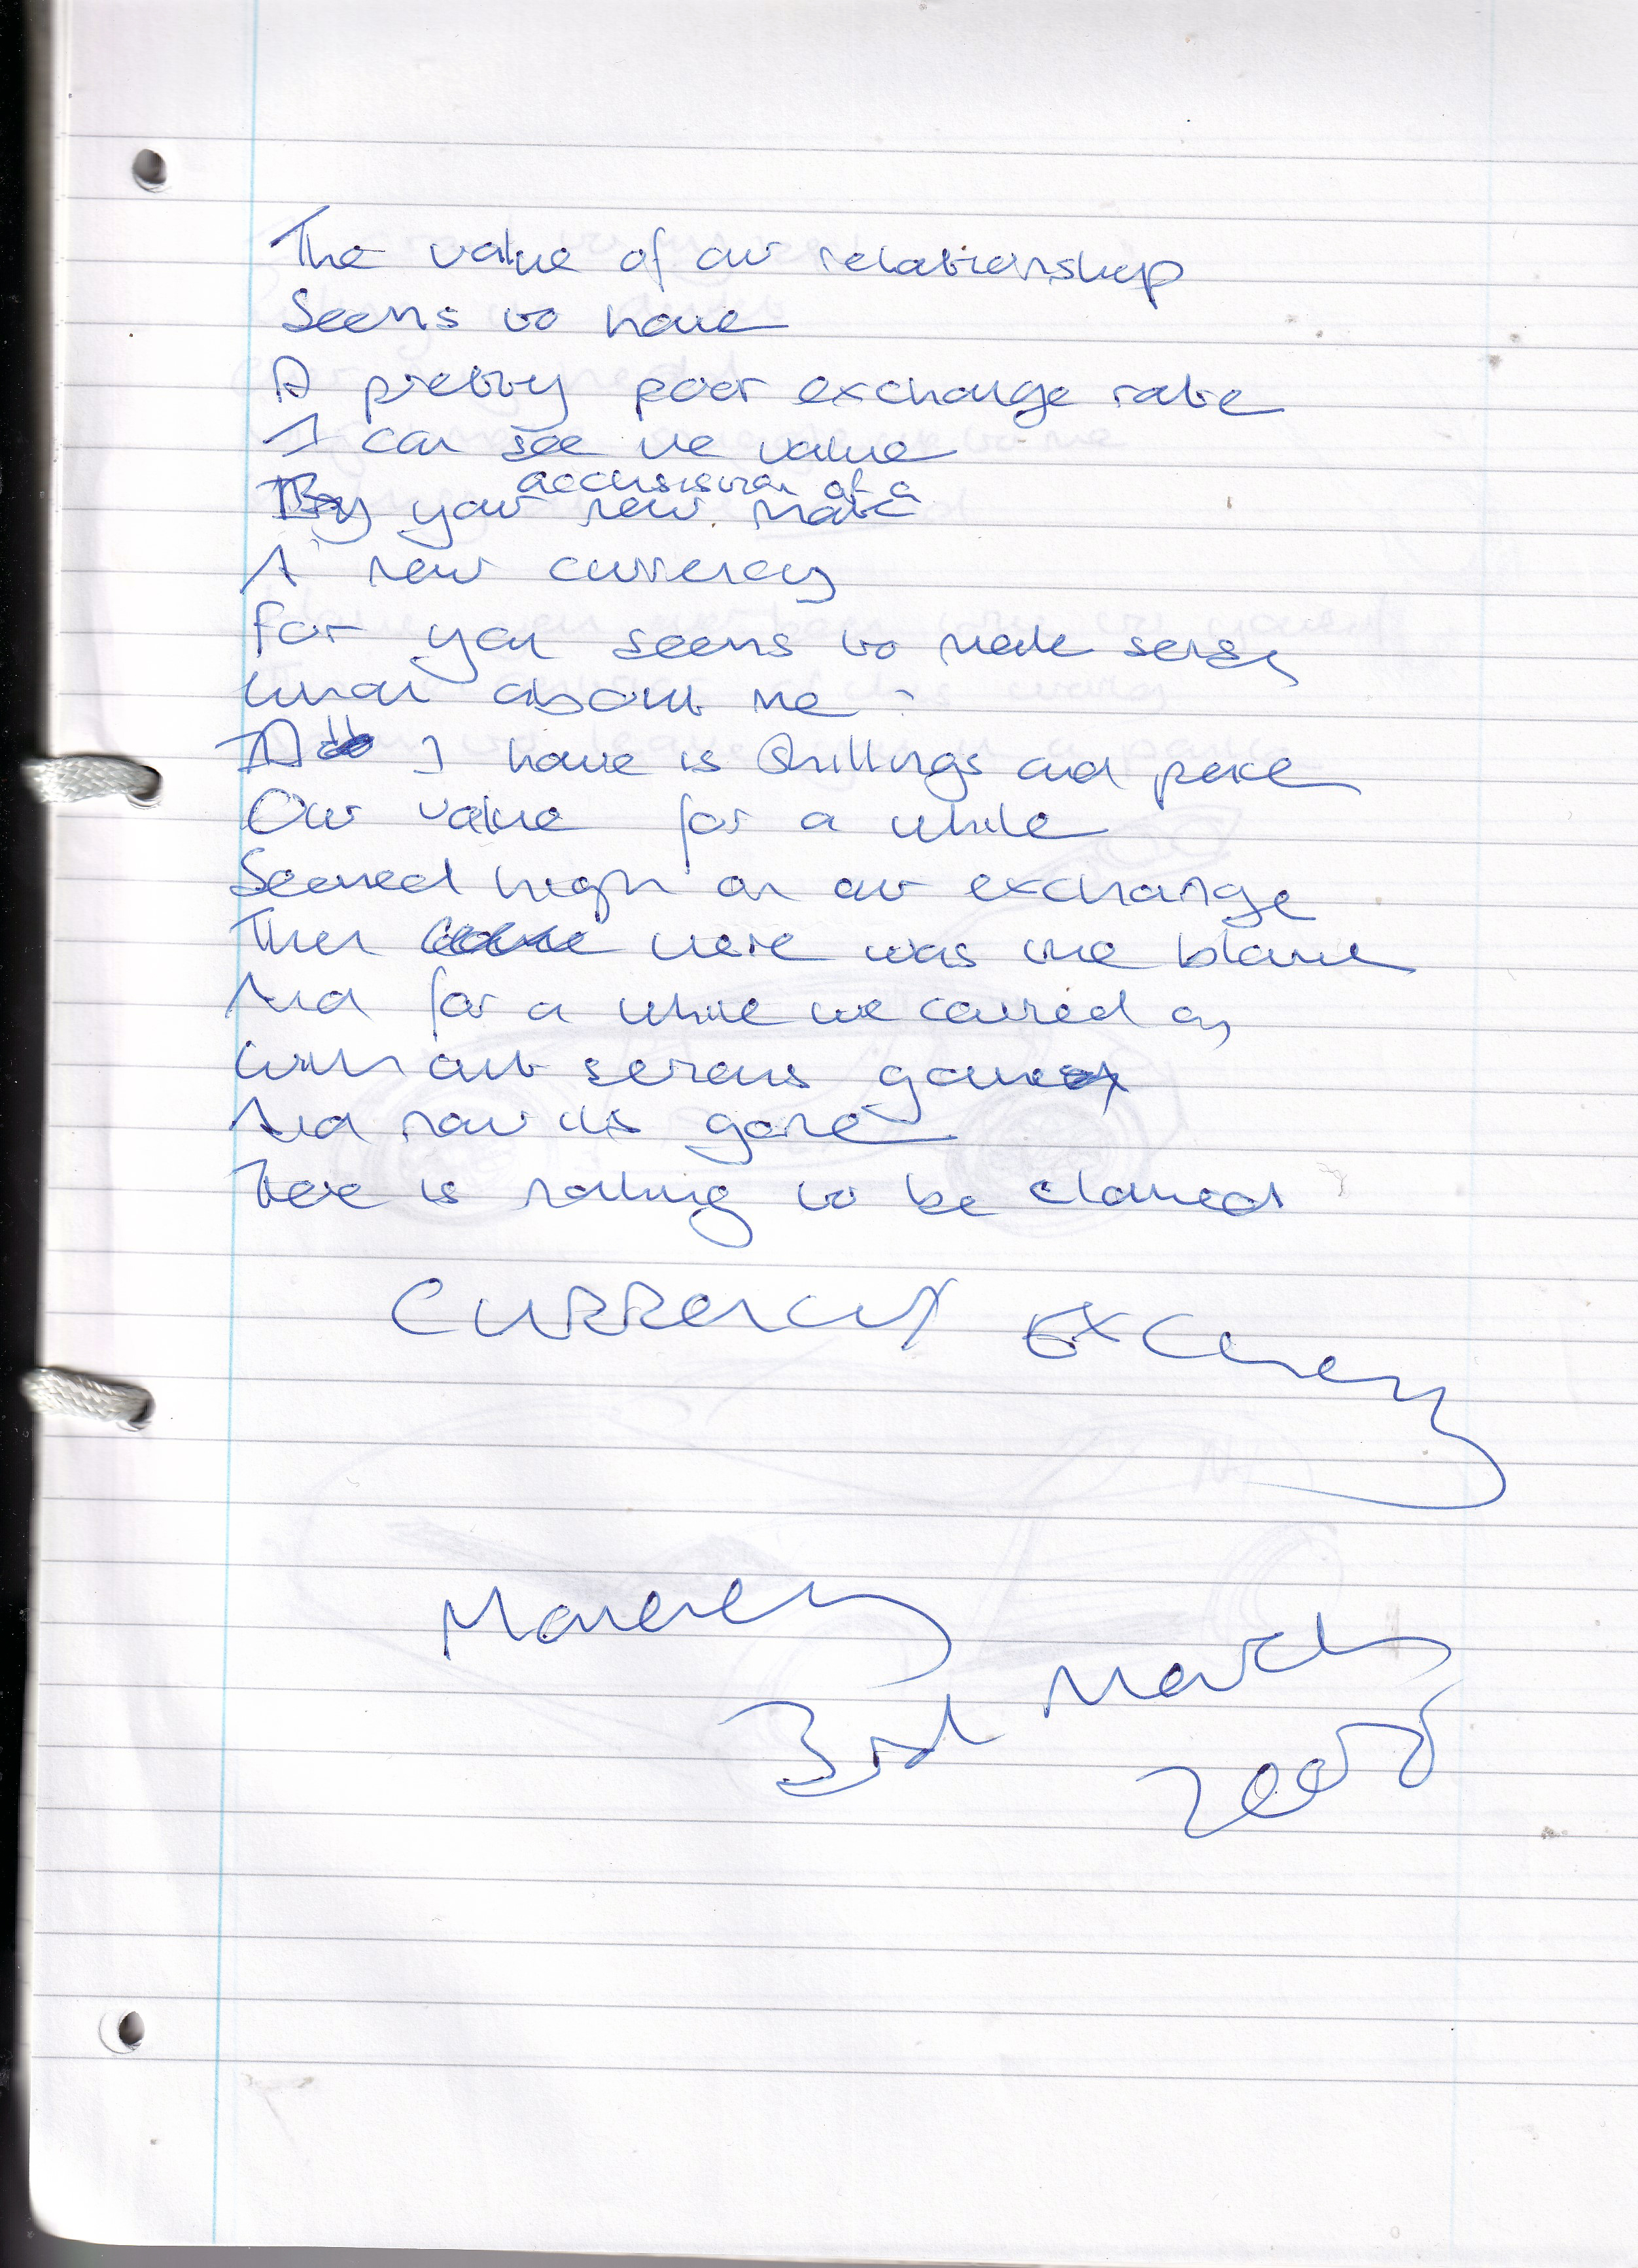 The value of our relationship
Seems to have
A pretty poor exchange rate
I can see the value
acchisision of a
By your new mate
A new currency
For you seems to make sense
What about me?
All I have is Shillings and pence
Our value for a while
Seemed high on our exchange
Then there was the blame
And for a while we carried on
Without serious gains
And now its gone
There is nothing to be claimed
CURRENCY EXCHANGE
March
3rd
2008